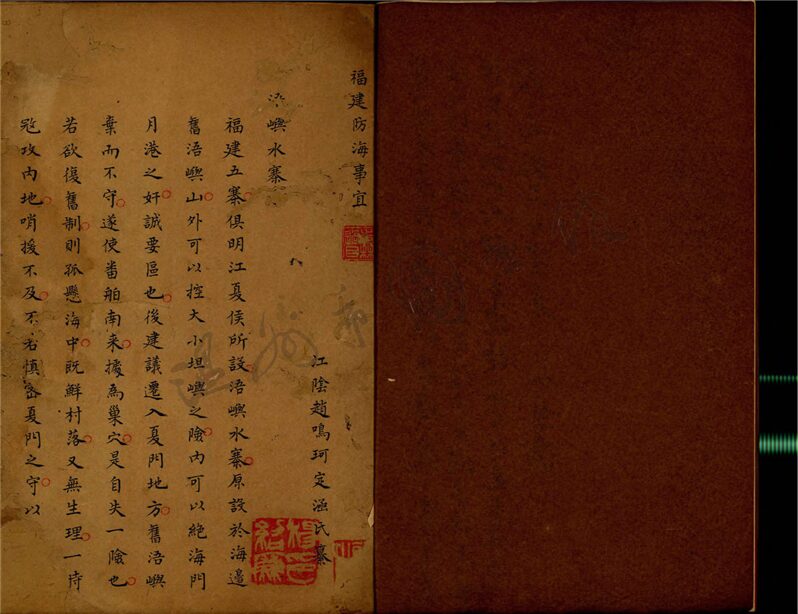 福建防海事宜
江陰趙鳴珂定浥氏纂
浯嶼水寨
福建五寨俱明江夏侯所設浯嶼水寨原設於海邊
舊浯嶼山外可以控大小坦嶼之險內可以絕海門
月港之奸誠要區也後建議遷入夏門地方舊浯嶼
棄而不守遂使番舶南來據為巢穴是自失一險也
若欲復舊制則孤懸海中既鮮村落又無生理一時
冦攻內地哨援不及不若慎密夏門之守以